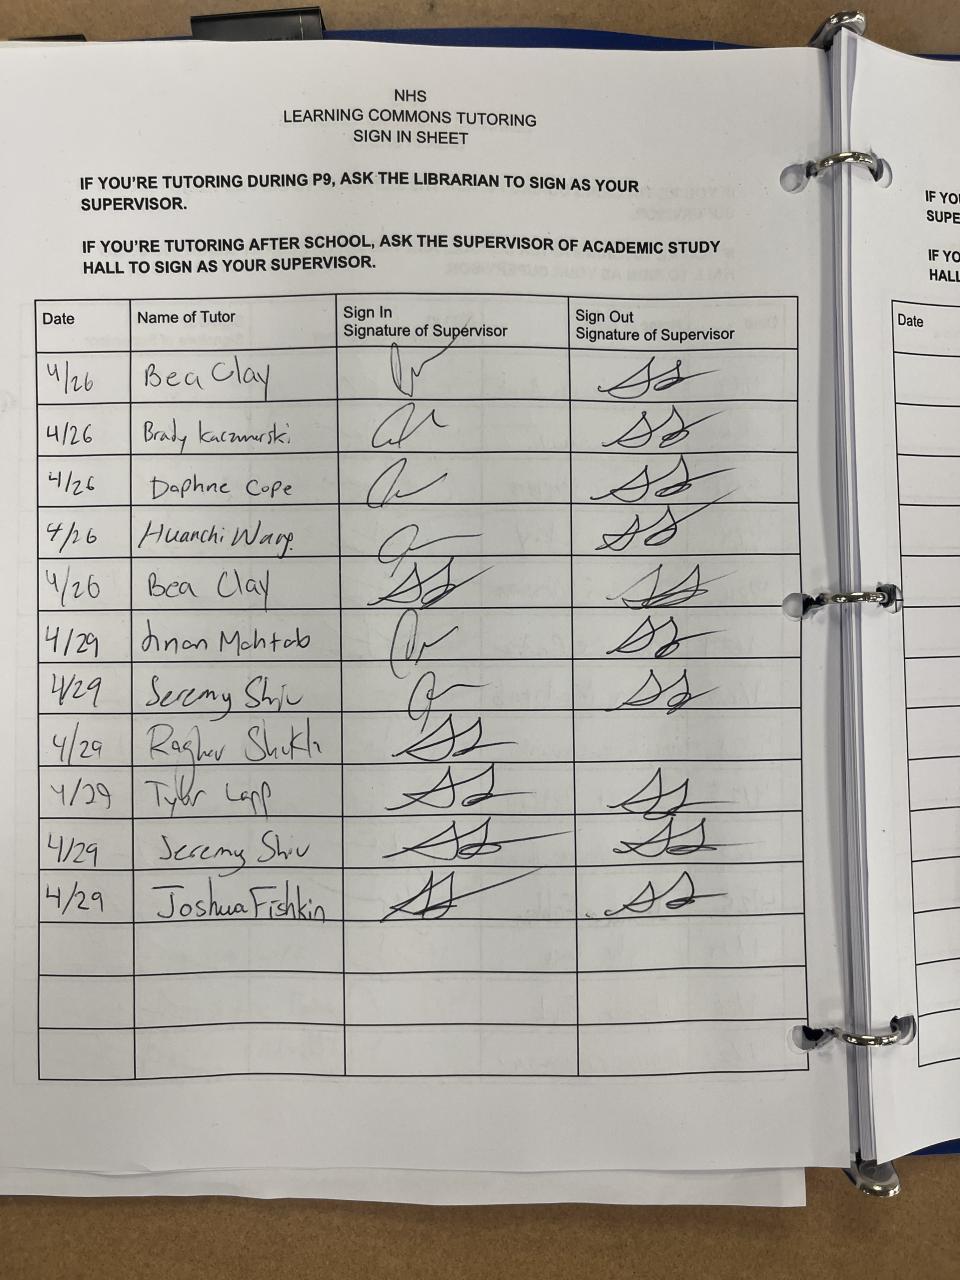 NHS
LEARNING COMMONS TUTORING
SIGN IN SHEET
IF YOU'RE TUTORING DURING P9, ASK THE LIBRARIAN TO SIGN AS YOUR
SUPERVISOR.
IF YOU'RE TUTORING AFTER SCHOOL, ASK THE SUPERVISOR OF ACADEMIC STUDY
HALL TO SIGN AS YOUR SUPERVISOR.
Date Name of Tutor Sign In Signature of Supervisor Sign Out Signature of Supervisor
4/26 Bea Clay
4/26 Brady
4/26 Daphne Cope
4/26 Huanchi Wang
4/26 Bea Clay
4/29 Mahtab
4/29 Jeremy Shiu
4/29 Raghav
4/29 Tyler Lapp
4/29 Jeremy Shiu
4/29 Joshua Fishkin
IF YO
SUPE
IF YO
HALL
Date